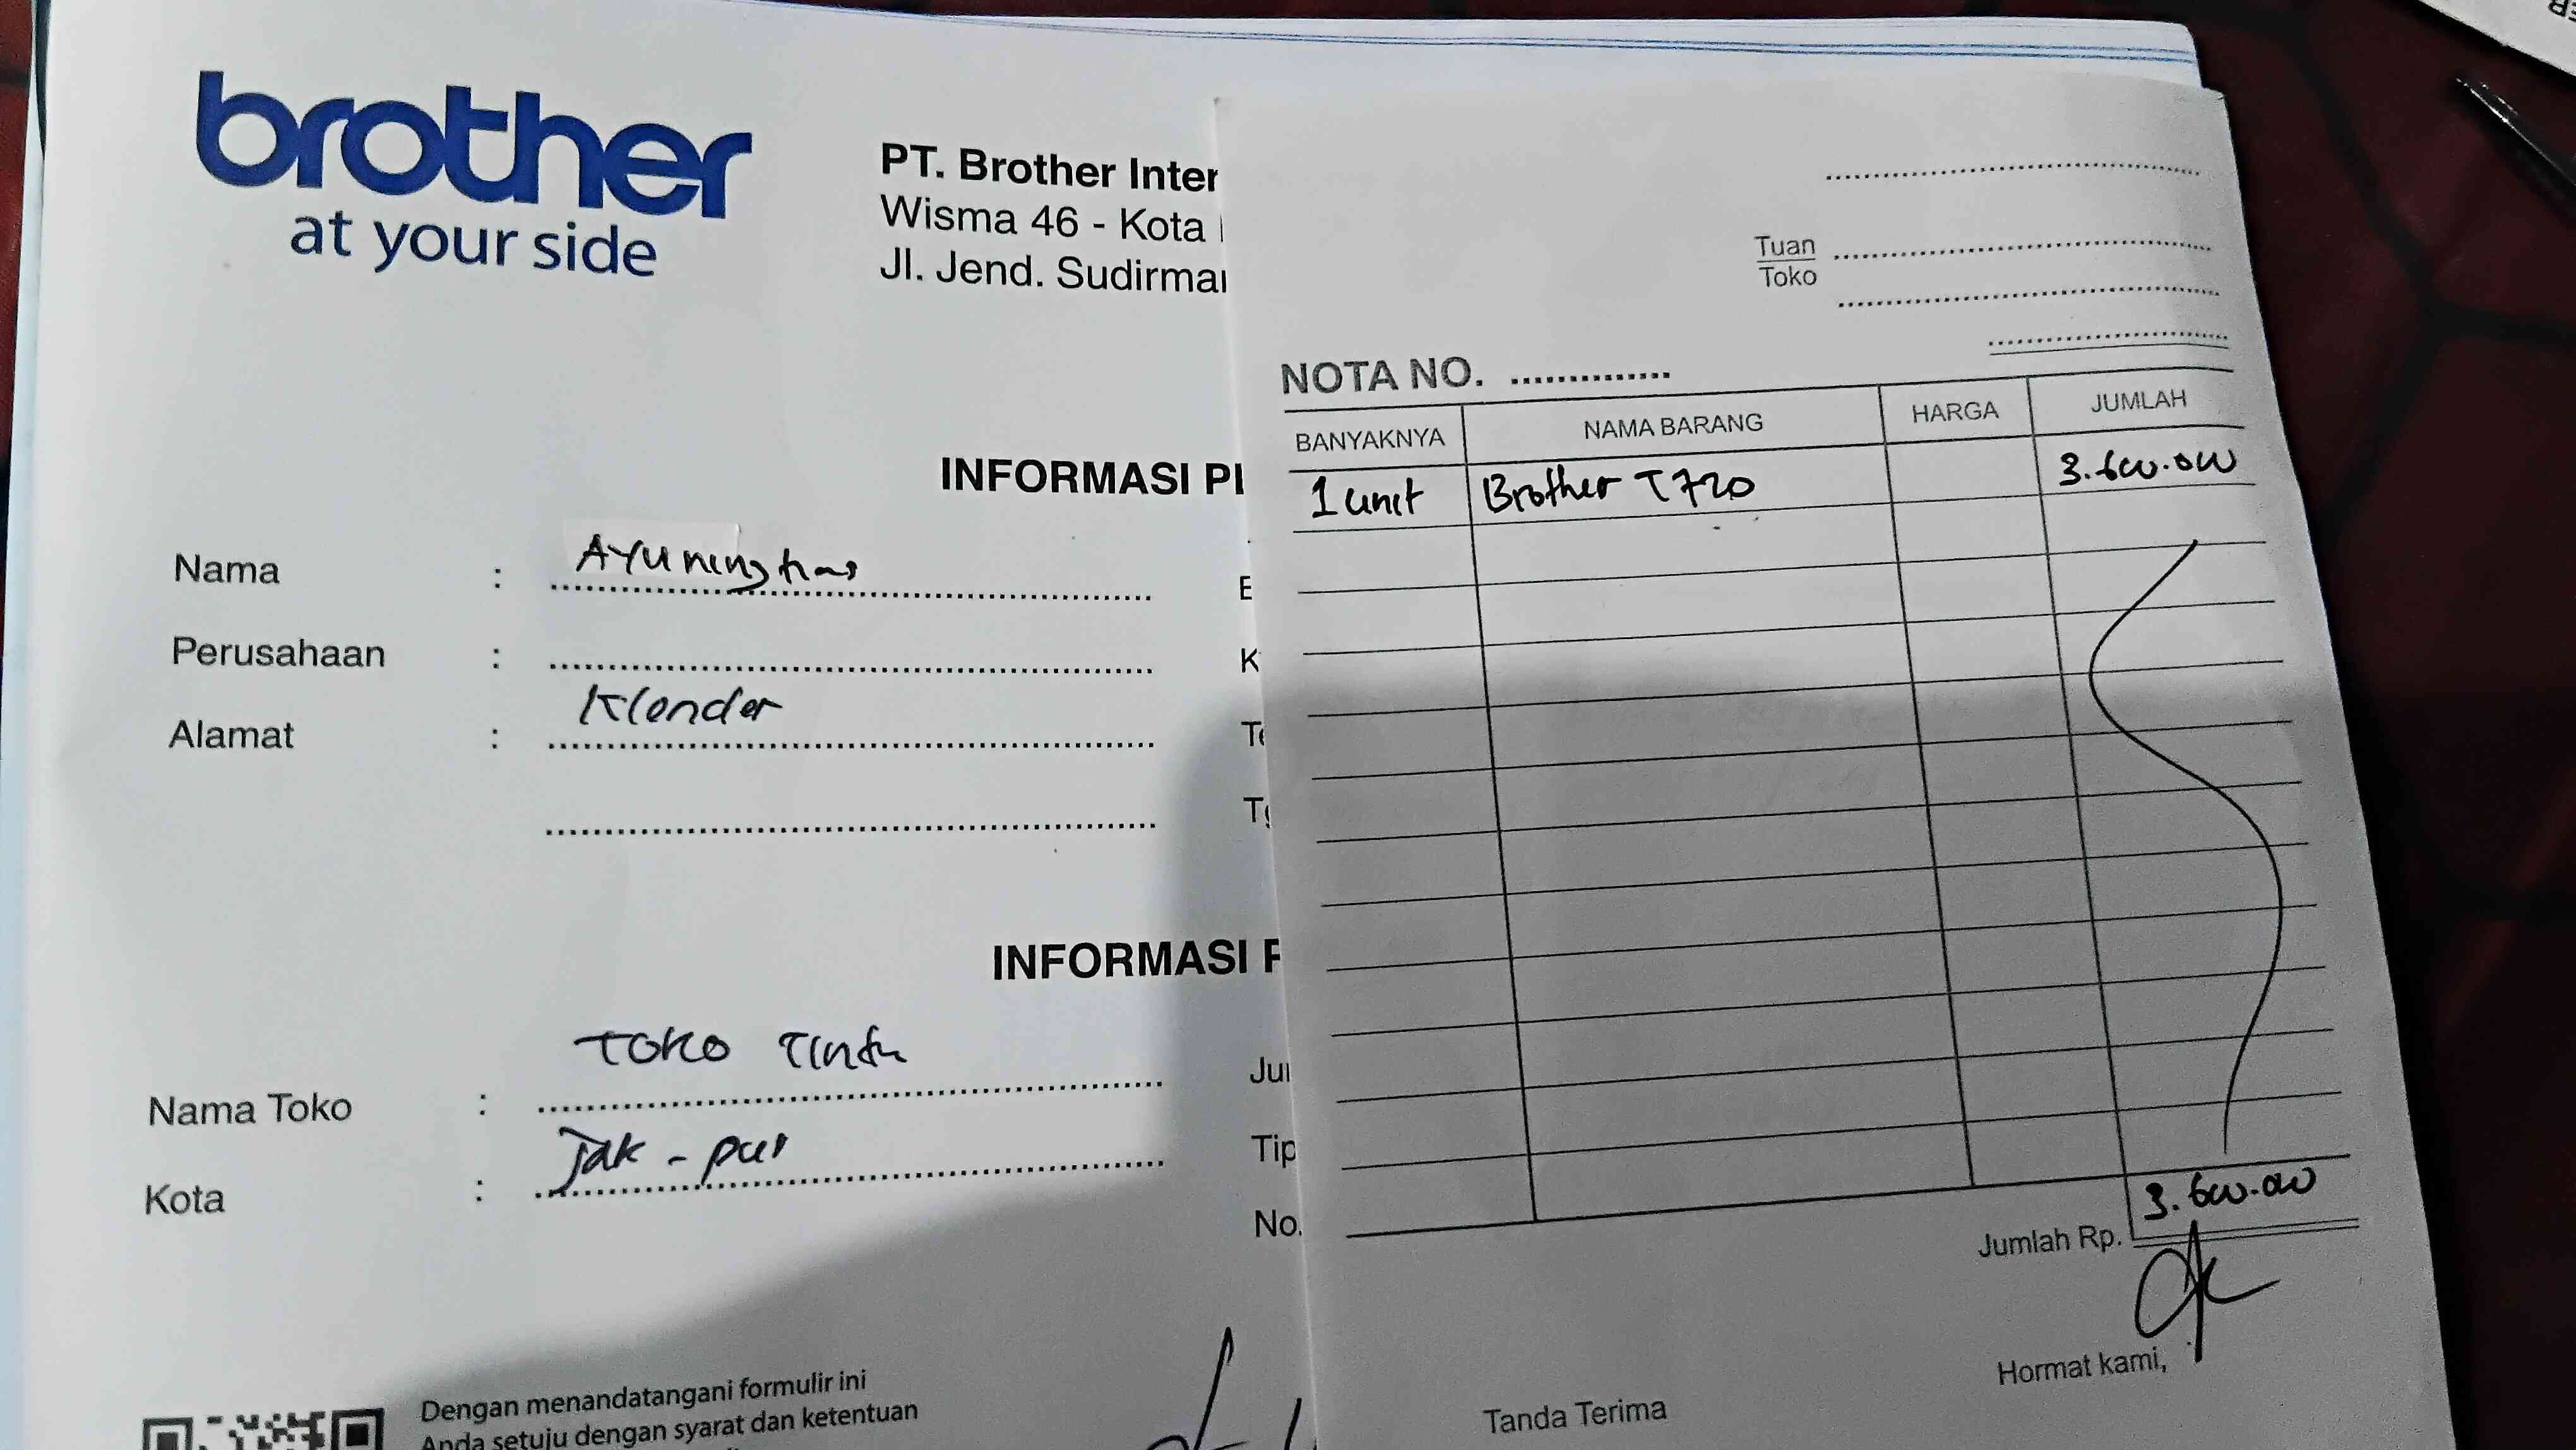 brother
at your side
PT. Brother Inter
Wisma 46 - Kota
Jl. Jend. Sudirman
INFORMASI
Nama : Ayuningtias
Perusahaan :
Alamat : Klender
INFORMASI
Nama Toko : Toko Tinta
Kota : Jak - pus
No.
Dengan menandatangani formulir ini
Anda setuju dengan syarat dan ketentuan
Tuan
Toko
NOTA NO.
BANYAKNYA NAMA BARANG HARGA JUMLAH
1 unit Brother T720 3.600.000
Jumlah Rp. 3.600.000
Tanda Terima Hormat kami,